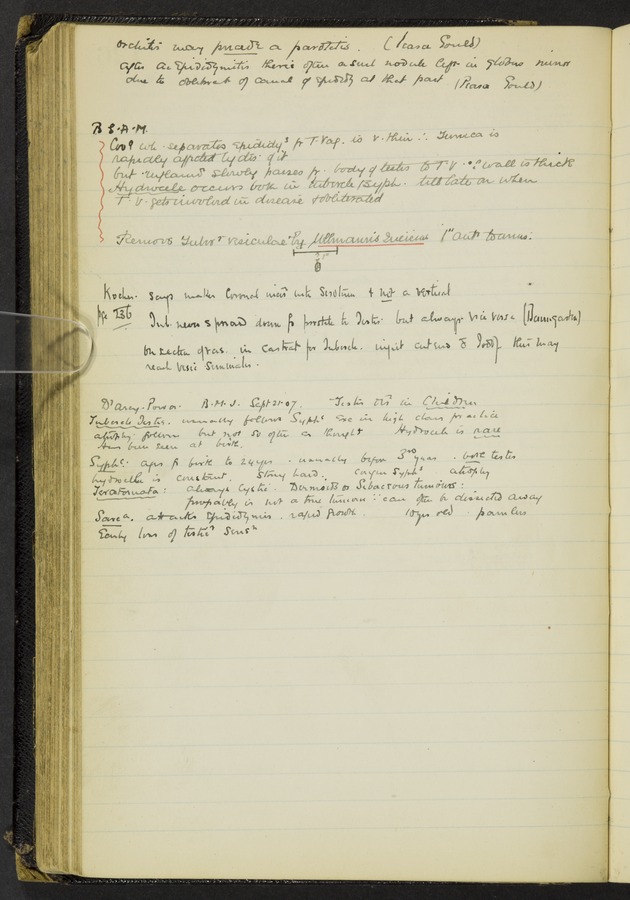 orchitis may precede a parotitis. (Pearce Gould)
after Ac Epididymitis there is often a small nodule left in globus minor
due to obliterat of canal of epididy at that part (Pearce Gould)
B S.A.M.
wh. separates epididys fr T. Vag. is v. thin ∴ Tunica is
rapidly affected by dis. of it
but inflam slowly passes fr. body of testes to T.V ∵ wall is thick
Hydrocele occurs both in tubercle & syph. till late on when
T.V. gets involved in disease & obliterated
Remove Tuber vesiculae by Ullmann's Incision 1" ant to anus.
Kocher. says make Coronal incis into Scrotum & not a vertical
pge 236
Tub. never spread down fr prostate to Testis but always vice versa (Baumgarten)
on section of vas. in castrat for Tubercle. inject cut end this may
reach vesic Seminales.
D'Arcy. Power. B.M.J. Sept 21. 07. Testes dis in Children
Tubercle Testes. usually follows Syph exc in high class practice
atrophy follows but not so often as thought Hydrocele is rare
Has been seen at birth.
Syph: ages fr birth to 24 yrs. usually before 3rd year. both testes
hydrocele is constant. Stony hard. atrophy
Teratomata: always cystic. Dermoids or Sebaceous tumours:
probably is not a true tumour ∵ can often be dissected away
Sarca. attacks epididymis. rapid growth. 10 yrs old. painless
Early loss of testic Sensn